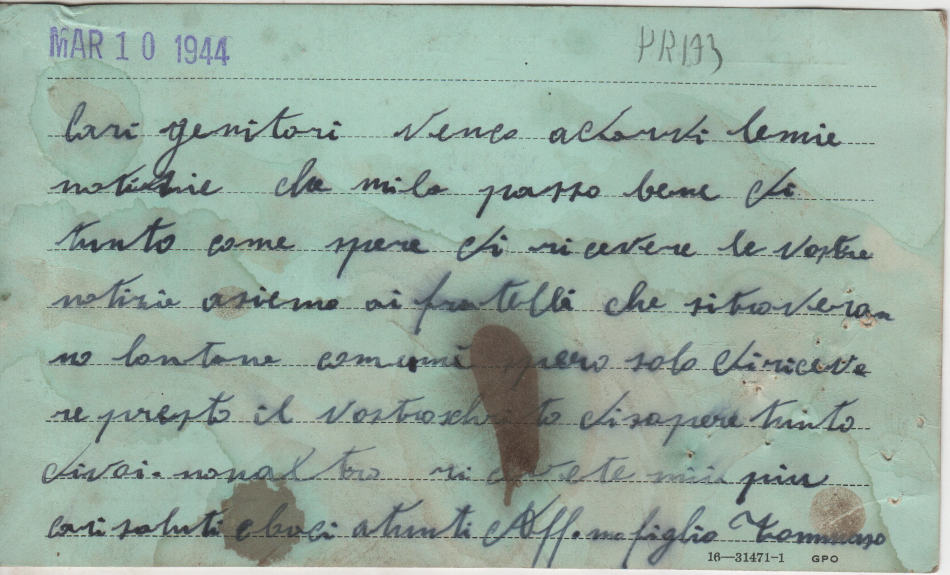 MAR 10 1944
PR193
Cari genitori vengo adarvi lemie
notizhie che mila passo bene di
tunto come spere di ricevere le vostre
notizie asieme ai fratelli che sitroveran
no lontane spero solo diriceve
re presto il vostro to disapere tunto
divoi. nonaltro ricevete miei piu
cari saluti e baci atunti Aff.mo figlio Tommaso
16—31471-1 GPO